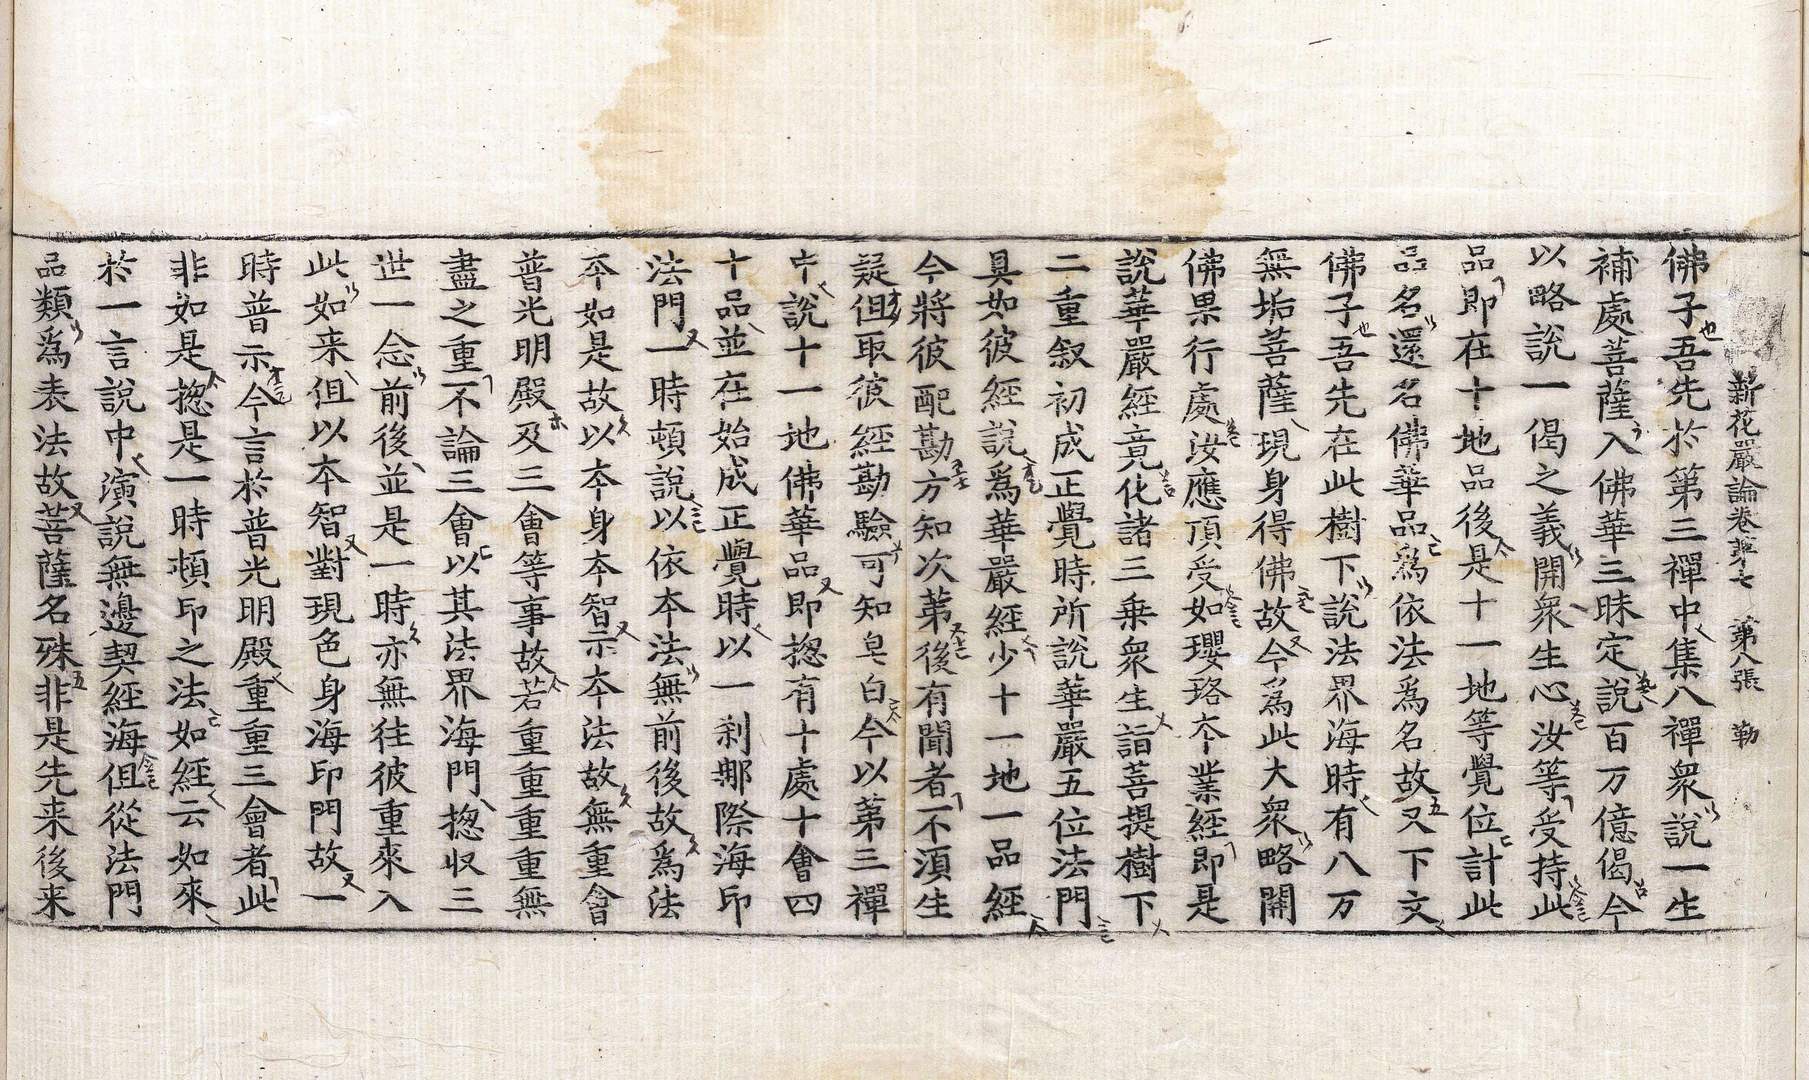 新花嚴論卷第七　第八張　勒
佛子吾先於第三禪中集八禪衆說一生
補處菩薩入佛華三昧定說百万億偈今
以略說一偈之義開衆生心汝等受持此
品即在十地品後是十一地等覺位計此
品名還名佛華品爲依法爲名故又下文
佛子吾先在此樹下說法界海時有八万
無垢菩薩現身得佛故今爲此大衆略開
佛果行處汝應頂受如瓔珞夲業經即是
說華嚴經竟化諸三乗衆生詣菩提樹下
二重叙初成正覺時所說華嚴五位法門
具如彼經說爲華嚴經少十一地一品經
今將彼配勘方知次第後有聞者不湏生
疑但取彼經勘驗可知皂白今以第三禪
中說十一地佛華品即揔有十處十會四
十品並在始成正覺時以一刹那際海印
法門一時頓說以依夲法無前後故爲法
夲如是故以夲身夲智示夲法故無重會
普光明殿及三會等事故若重重重重無
盡之重不論三會以其法界海門揔収三
世一念前後並是一時亦無往彼重來入
此如来但以夲智對現色身海印門故一
時普示今言於普光明殿重重三會者此
非如是揔是一時頓印之法如經云如來
於一言說中演說無邊契經海但從法門
品類爲表法故菩薩名殊非是先来後来